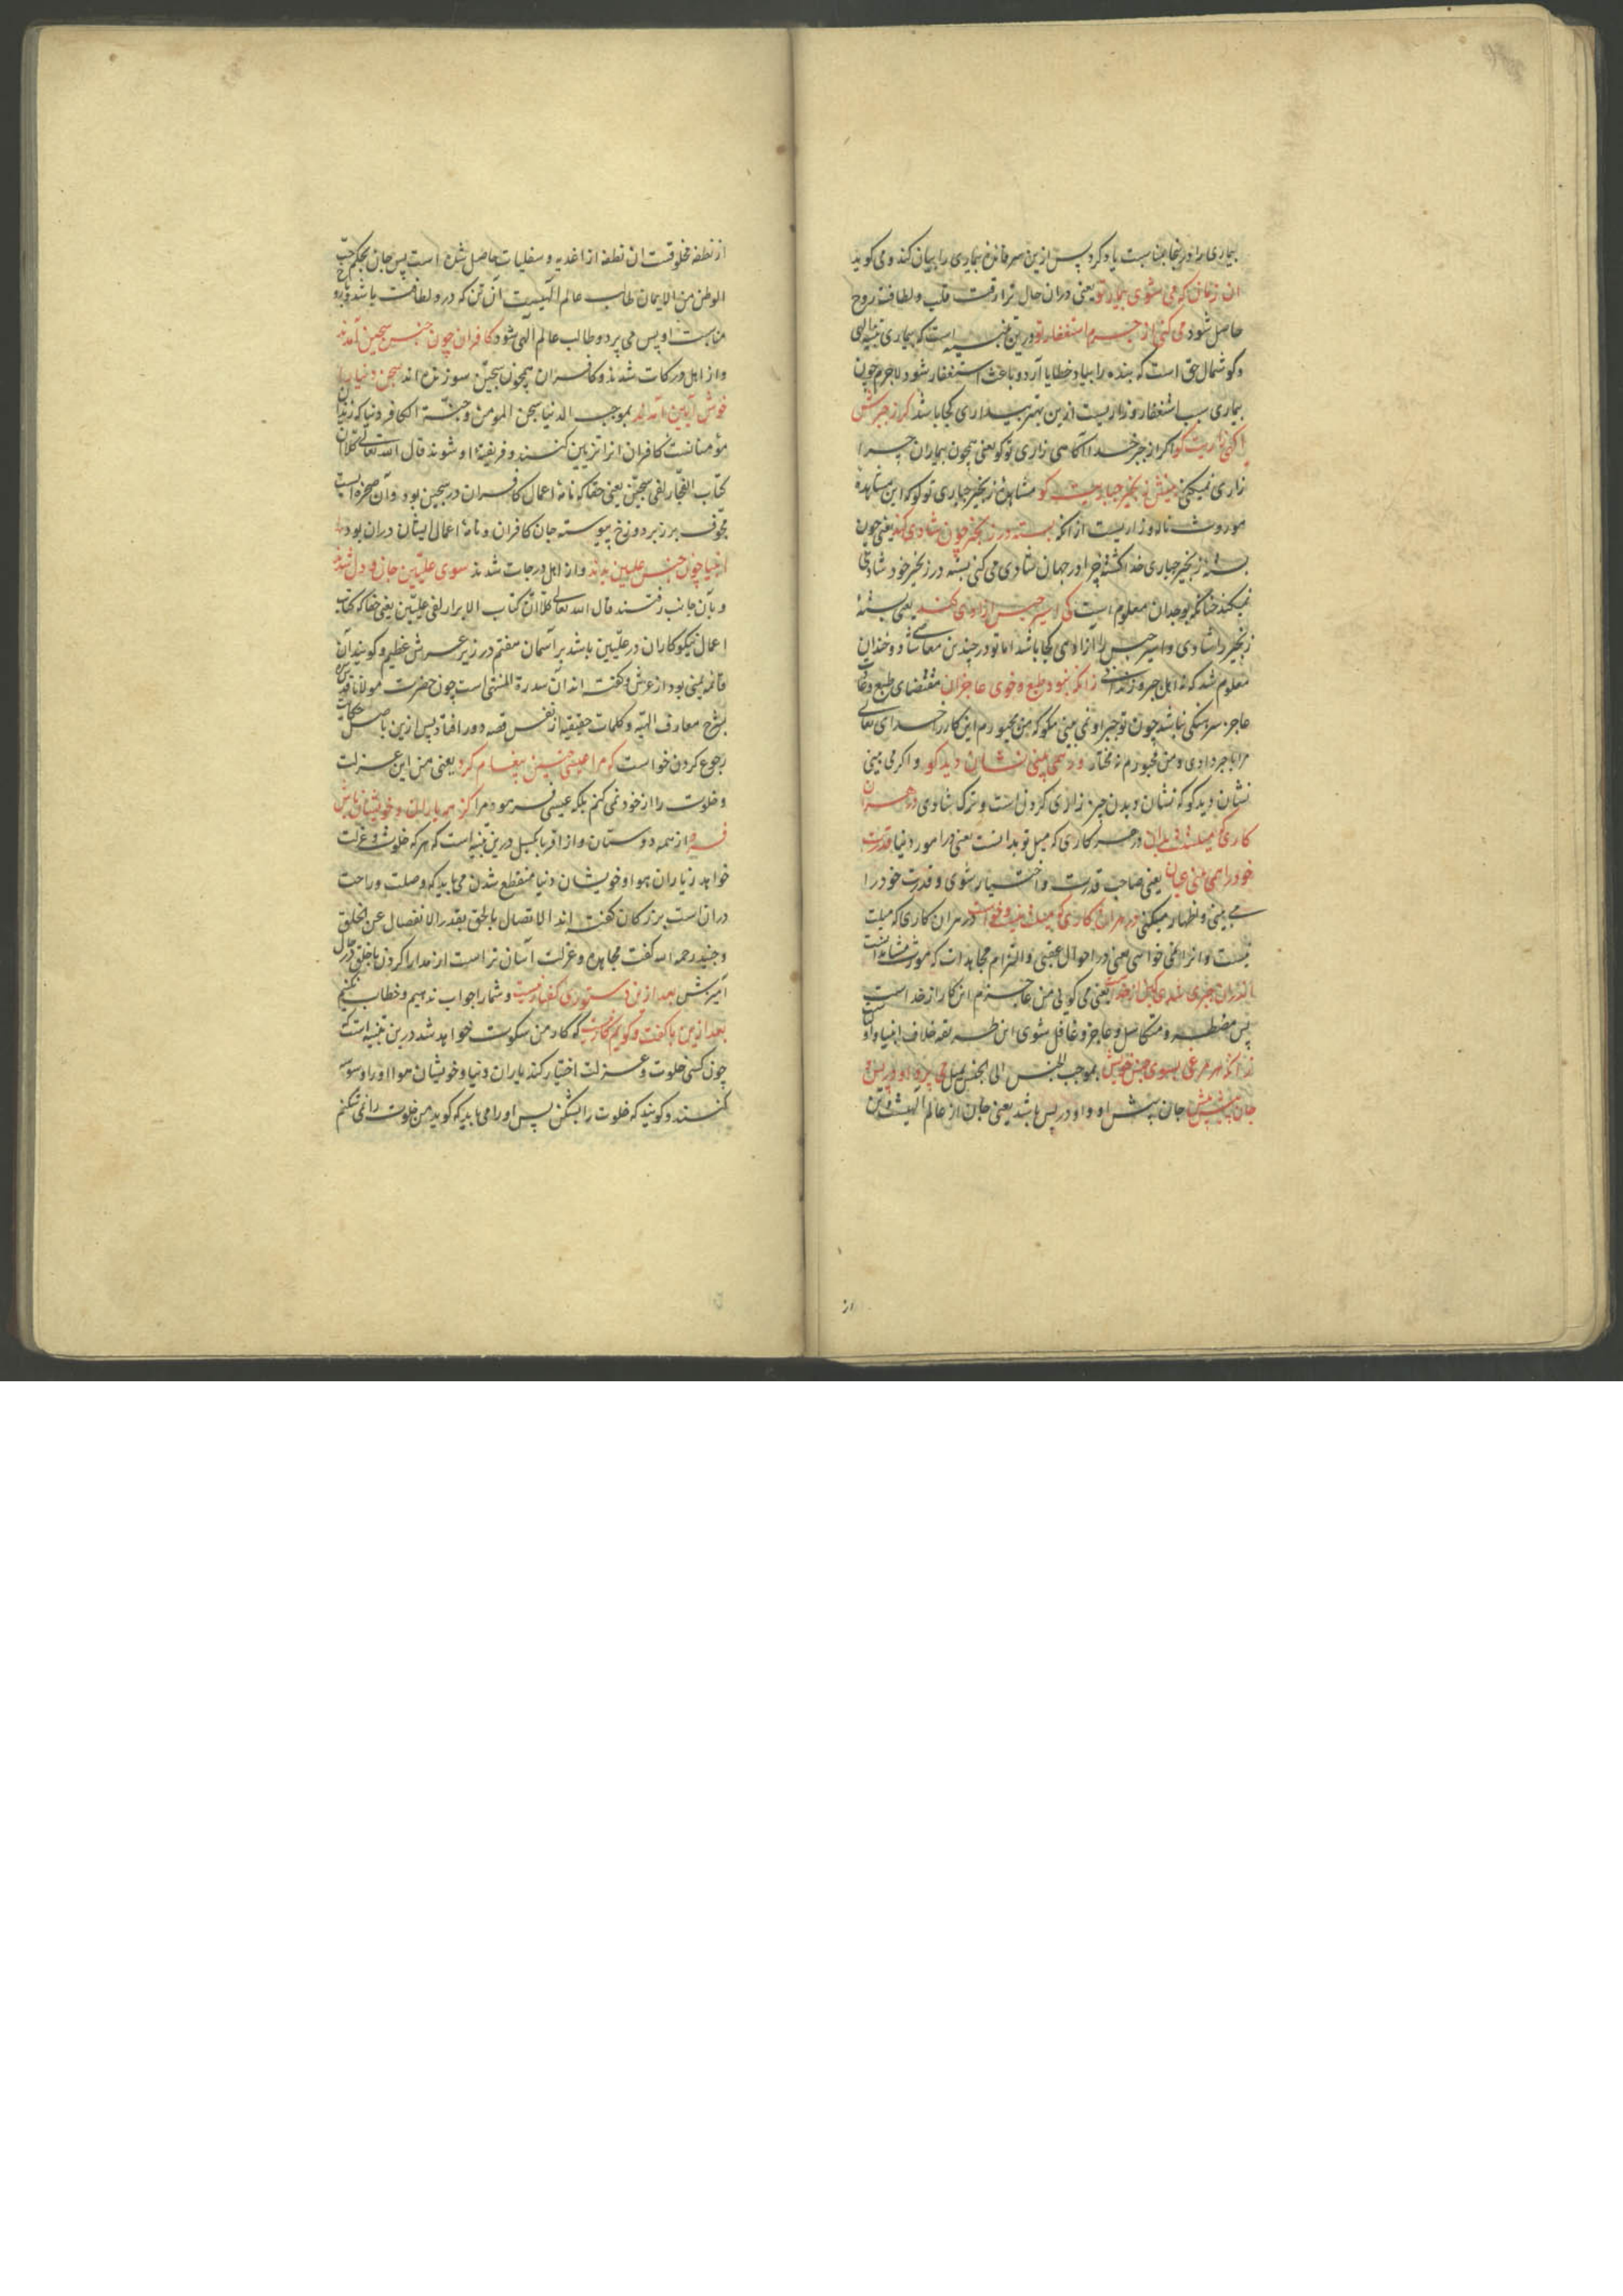 بیماری را درینجا بمناسبت یاد کرد پس ازین سر فائده بیماری را بیان کند و می کوید
ان زمان که می شوی بیمار تو یعنی دران حال ترا رقت قلب و لطافت روح
حاصل شود می کنی از جرم استغفار تو درین تنبیه است که بیماری تنبیه الهی
و کوشمال حق است که بنده را بیاد خطایا آرد و باعث استغفار شود لاجرم چون
بیماری سبب استغفار و زاریست ازین بهتر بیداری کجا باشد کر ز جبرش
آکهی زاریت کو اکر از جبر خدا آکاهی زاری تو کو یعنی همچون بیماران چرا
زاری نمیکنی بینش زنجیر جباریت کو مشاهده زنجیر جباری تو کو که این مشاهده
مورث ناله و زاریست از انکه بسته در زنجیر چون شادی کند یعنی چون
بسته زنجیر جباری خدا کشته چرا در جهان شادی می کنی بسته در زنجیر خود شادی
نمیکند چنانکه بوجدان معلوم است کی اسیر حبس ازادی کند یعنی بسته
زنجیر را شادی و اسیر حبس را ازادی کجا باشد اما تو در چندین معاصی شاد و خندان
معلوم شد که نه اهل جبر و زندانی زانکه نبود طبع و خوی عاجز ان مقتضای طبع و عادت
عاجز سرهنکی نباشد چون تو جبر او نمی بینی مکو که من مجبورم این کار را خدای تعالی
مرا با جبر دادی و من مجبورم نه مختار ور همی بینی نشان دید کو و اکر می بینی
نشان دید کو که نشان دیدن جبر زاری کردن است و ترک شادی در هر ان
کاری که میلستت بدان در هر کاری که میل تو بدانست یعنی در امور دنیا قدرت
خود را همی بینی عیان یعنی صاحب قدرت و اختیار شوی و قدرت خود را
می بینی و اظهار میکنی در هر ان کاری که میلت نیست و خواست در هر ان کاری که میلت
نیست و انرا نمی خواهی یعنی در احوال عقبی و التزام مجاهدات که مورث مشاهداتست
اندران جبری شدی کین از خداست یعنی می کویی من عاجزم این کار از خداست
پس مضطر و متکاسل و عاجز و غافل شوی این طریقه خلاف انبیا و اولیاست
زانکه هر مرغی بسوی جنس خویش بموجب الجنس الی الجنس یمیل می پرد او در پس و
جان پیش پیش جان پیش او و او در پس باشد یعنی جان از عالم الهیت و تن
از نطفه مخلوقت ان نطفه از اغذیه و سفلیات حاصل شده است پس جان بحکم حب
الوطن من الایمان طالب عالم الهیست آن تن که درو لطافت باشد و بروح
مناسبت او پس می پرد و طالب عالم الهی شود کافران چون جنس سجین آمدند
و از اهل درکات شدند و کافران همچون سجین سوزنده اند سجن دنیا را
خوش آیین آمدند بموجب الدنیا سجن المومن و جنة الکافر دنیا که زندان
مؤمنانست کافران انرا تزیین کنند و فریفته او شوند قال الله تعالی کلا ان
کتاب الفجار لفی سجین یعنی حقا که نامه اعمال کافران در سجین بود و آن صخره ایست
مجوف بر زبر دوزخ پیوسته جان کافران و نامه اعمال ایشان دران بود
انبیا چون جنس علیین بدند و از اهل درجات شدند سوی علیین جان و دل شدند
و بآن جانب رفتند قال الله تعالی کلا ان کتاب الابرار لفی علیین یعنی حقا که کتاب
اعمال نیکوکاران در علیین باشد بر آسمان هفتم در زیر عرش عظیم و کویند آن
قائمه یمنی بود از عرش و کفته اند ان سدرة المنتهی است چون حضرت مولانا قدس سره
بشرح معارف الهیه و کلمات حقیقیه از نفس قصه دور افتاد پس ازین باصل حکایت
رجوع کردن خواست کو مرا عیسی چنین پیغام کرد یعنی من این عزلت
و خلوت را از خود نمی کنم بلکه عیسی فرمود مرا کز همه یاران و خویشان باش
فرد از همه دوستان و از اقربا بکسل درین تنبیه است که هر که خلوت و عزلت
خواهد ز یاران هوا و خویشان دنیا منقطع شدن می باید که وصلت و راحت
دران است بزرکان کفته اند الاتصال بالحق بقدر الانفصال عن الخلق
و جنید رحمه الله کفت مجاهده و عزلت آسان تر است از مدارا کردن با خلق و در
آمیزش بعد ازین دستوری کفتار نیست و شما را جواب ندهیم و خطاب نکنیم
بعد ازین با کفت و کویم کار نیست که کار من سکوت خواهد شد درین تنبیه است که
چون کسی خلوت و عزلت اختیار کند یاران دنیا و خویشان هوا او را وسوسه
کنند و کویند که خلوت را بشکن پس او را می باید که کوید من خلوت را نمی شکنم
از